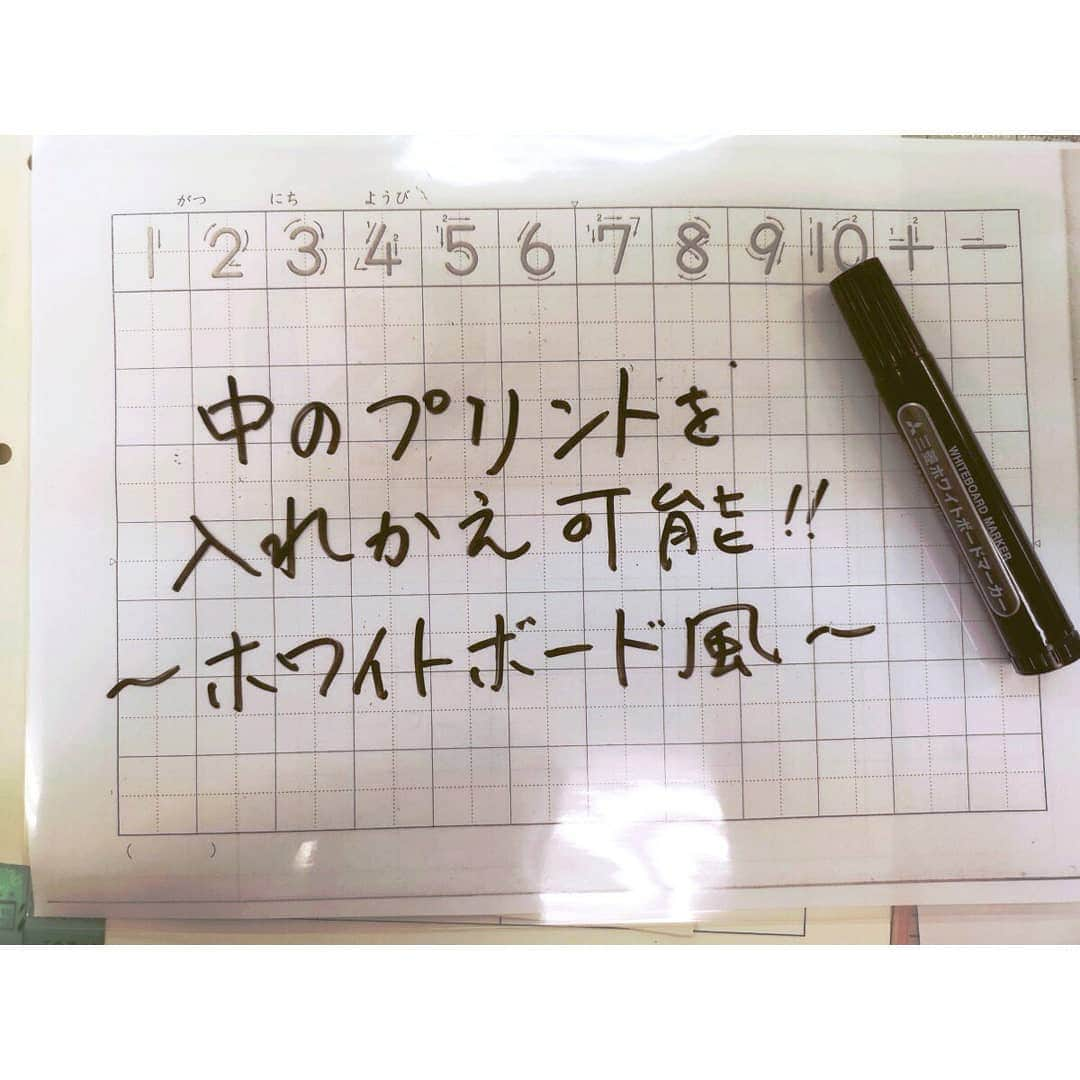 がつ にち ようび
1 2 3 4 5 6 7 8 9 10 + −
中のプリントを
入れかえ可能!!
～ホワイトボード風～
( )
WHITEBOARD MARKER
三菱ホワイトボードマーカー